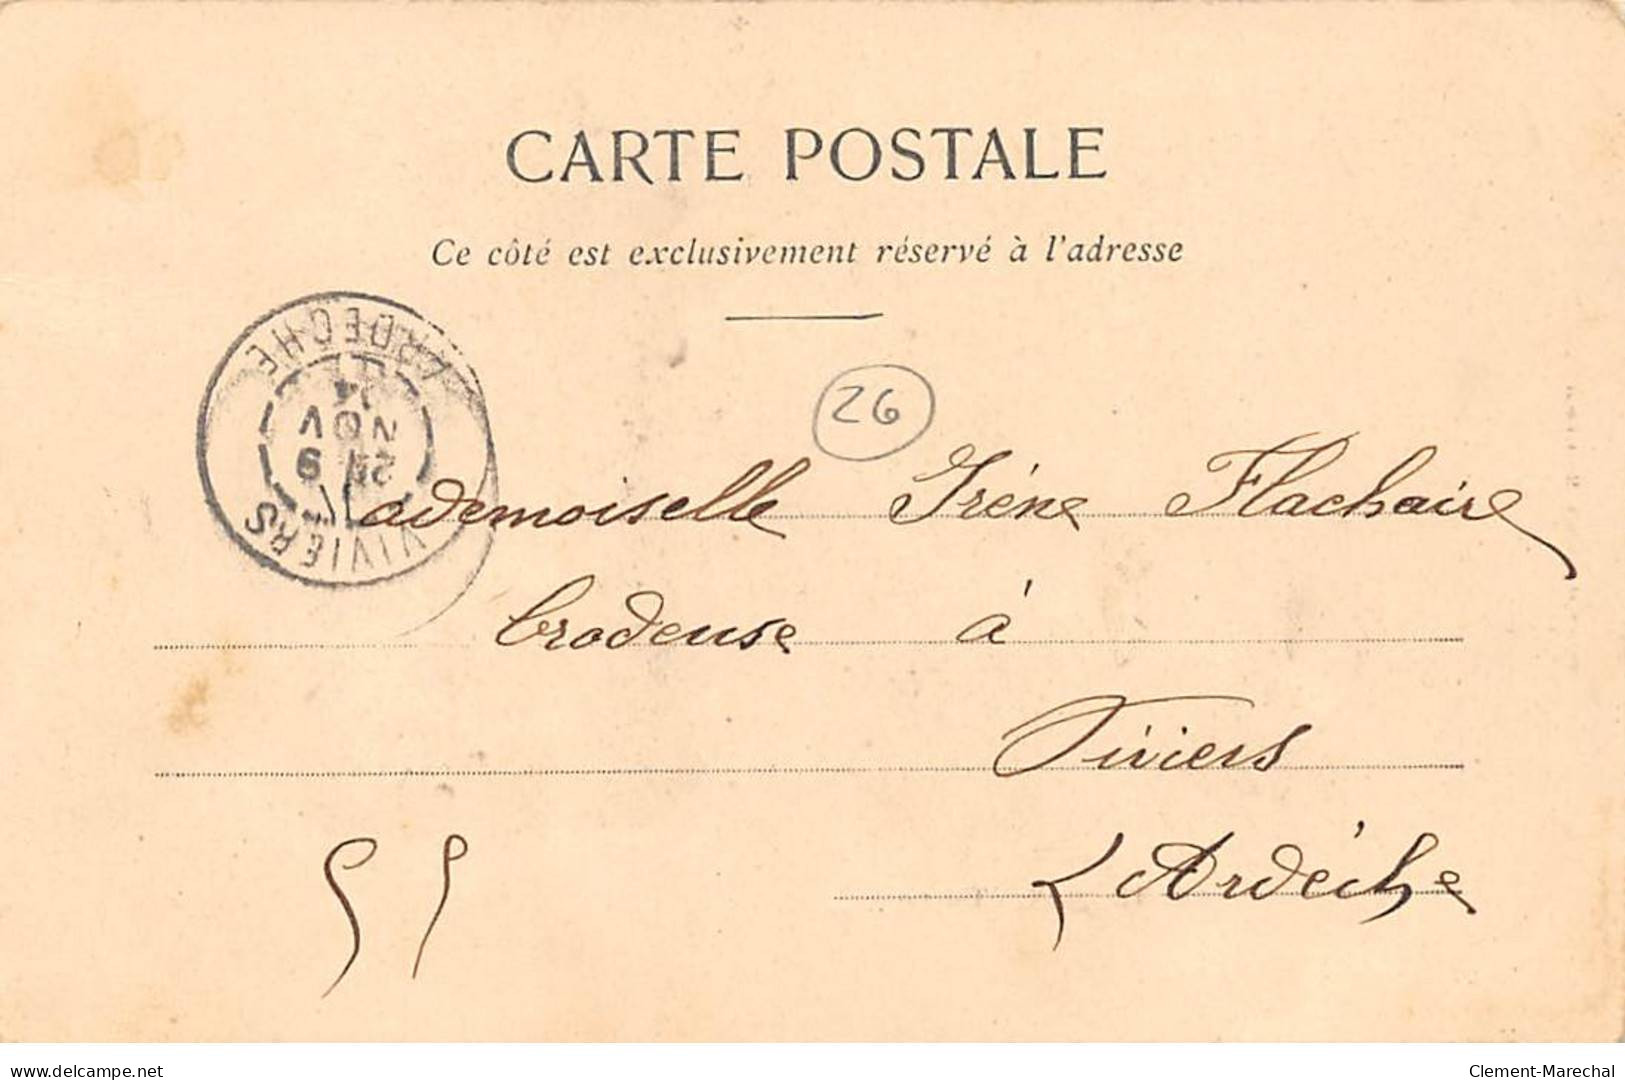 CARTE POSTALE
Ce côté est exclusivement réservé à l'adresse
VIVIERS
NOV
ARDECHE
26
Mademoiselle Irène Flachaire
brodeuse à
Viviers
Ardèche
delcampe.net
Clement-Marechal